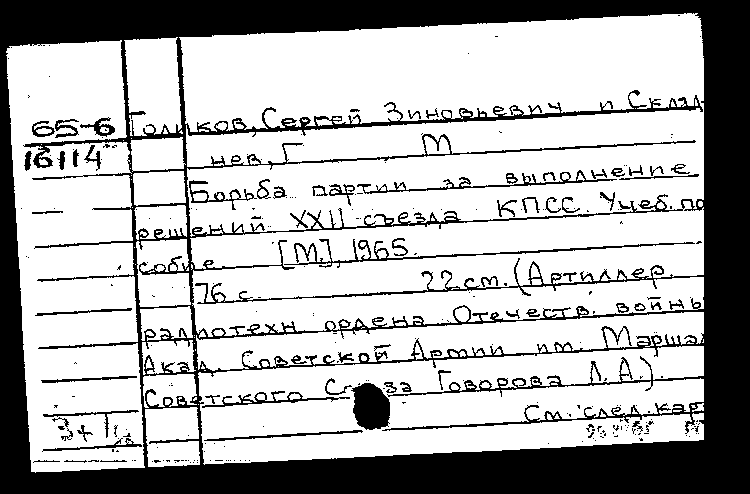 65-6 Голиков, Сергей Зиновьевич и Складнев, Г М
16114
Борьба партии за выполнение
решений XXII съезда КПСС. Учеб. по
собие. [М.], 1965.
76 с. 22 см. (Артиллер.
радиотехн ордена Отечеств. войны
Акад. Советской Армии им. Маршал
Советского Союза Говорова Л. А.).
См. след. кар
3+1